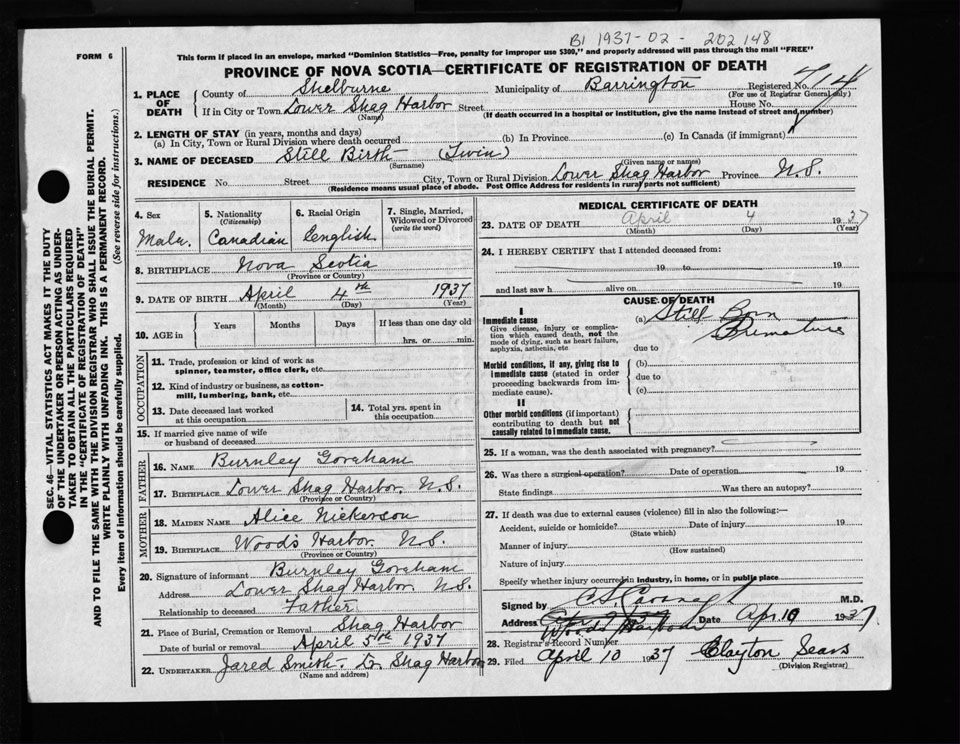 B1 1937-02-202148
FORM 6
This form if placed in an envelope, marked "Dominion Statistics—Free, penalty for improper use $300," and properly addressed will pass through the mail "FREE"
PROVINCE OF NOVA SCOTIA—CERTIFICATE OF REGISTRATION OF DEATH
1. PLACE OF DEATH
County of Shelburne Municipality of Barrington Registered No. 714
(For use of Registrar General only)
If in City or Town Lower Shag Harbor Street House No.
(Name) (If death occurred in a hospital or institution, give the name instead of street and number)
2. LENGTH OF STAY (in years, months and days)
(a) In City, Town or Rural Division where death occurred (b) In Province (c) In Canada (if immigrant)
3. NAME OF DECEASED Still Birth (Twin)
(Surname) (Given name or names)
RESIDENCE No. Street City, Town or Rural Division Lower Shag Harbor Province N.S.
(Residence means usual place of abode. Post Office Address for residents in rural parts not sufficient)
4. Sex
Male.
5. Nationality
(Citizenship)
Canadian
6. Racial Origin
English
7. Single, Married, Widowed or Divorced
(write the word)
8. BIRTHPLACE Nova Scotia
(Province or Country)
9. DATE OF BIRTH April 4th 1937
(Month) (Day) (Year)
10. AGE in
Years Months Days If less than one day old
hrs. or min.
OCCUPATION
11. Trade, profession or kind of work as
spinner, teamster, office clerk, etc.
12. Kind of industry or business, as cotton-
mill, lumbering, bank, etc.
13. Date deceased last worked
at this occupation
14. Total yrs. spent in
this occupation
15. If married give name of wife
or husband of deceased
FATHER
16. NAME Burnley Goreham
17. BIRTHPLACE Lower Shag Harbor. N.S.
(Province or Country)
MOTHER
18. MAIDEN NAME Alice Nickerson
19. BIRTHPLACE Woods Harbor. N.S.
(Province or Country)
20. Signature of informant Burnley Goreham
Address Lower Shag Harbor N.S.
Relationship to deceased Father
21. Place of Burial, Cremation or Removal Shag Harbor
Date of burial or removal April 5th 1937
22. UNDERTAKER Jared Smith. L. Shag Harbor
(Name and address)
MEDICAL CERTIFICATE OF DEATH
23. DATE OF DEATH April 4 1937
(Month) (Day) (Year)
24. I HEREBY CERTIFY that I attended deceased from:
19 to 19
and last saw h alive on 19
CAUSE OF DEATH
I
Immediate cause
Give disease, injury or complica-
tion which caused death, not the
mode of dying, such as heart failure,
asphyxia, asthenia, etc
(a) Still Born
Premature
due to
Morbid conditions, if any, giving rise to
immediate cause (stated in order
proceeding backwards from im-
mediate cause).
(b)
due to
(c)
II
Other morbid conditions (if important)
contributing to death but not
causally related to immediate cause.
25. If a woman, was the death associated with pregnancy?
26. Was there a surgical operation? Date of operation 19
State findings Was there an autopsy?
27. If death was due to external causes (violence) fill in also the following:—
Accident, suicide or homicide? Date of injury 19
(State which)
Manner of injury
(How sustained)
Nature of injury
Specify whether injury occurred in industry, in home, or in public place
Signed by C S Cavanagh M.D.
Address Woods Harbour Date Apr 10 1937
28. Registrar's Record Number
29. Filed April 10 1937 Clayton Sears
(Division Registrar)
SEC. 46—VITAL STATISTICS ACT MAKES IT THE DUTY
OF THE UNDERTAKER OR PERSON ACTING AS UNDER-
TAKER TO OBTAIN ALL THE PARTICULARS REQUIRED
IN THE "CERTIFICATE OF REGISTRATION OF DEATH"
AND TO FILE THE SAME WITH THE DIVISION REGISTRAR WHO SHALL ISSUE THE BURIAL PERMIT.
WRITE PLAINLY WITH UNFADING INK. THIS IS A PERMANENT RECORD.
Every item of information should be carefully supplied. (See reverse side for instructions.)